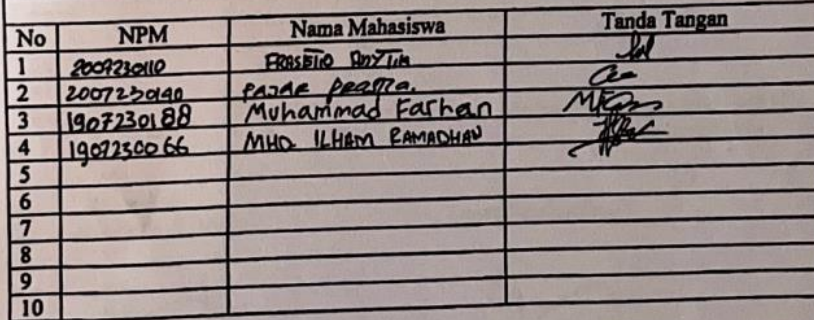 No NPM Nama Mahasiswa Tanda Tangan
1 2007230110
2 2007230140 FAJAR PRAMA.
3 1907230188 Muhammad Farhan
4 1907230066 MHD ILHAM RAMADHAN
5
6
7
8
9
10